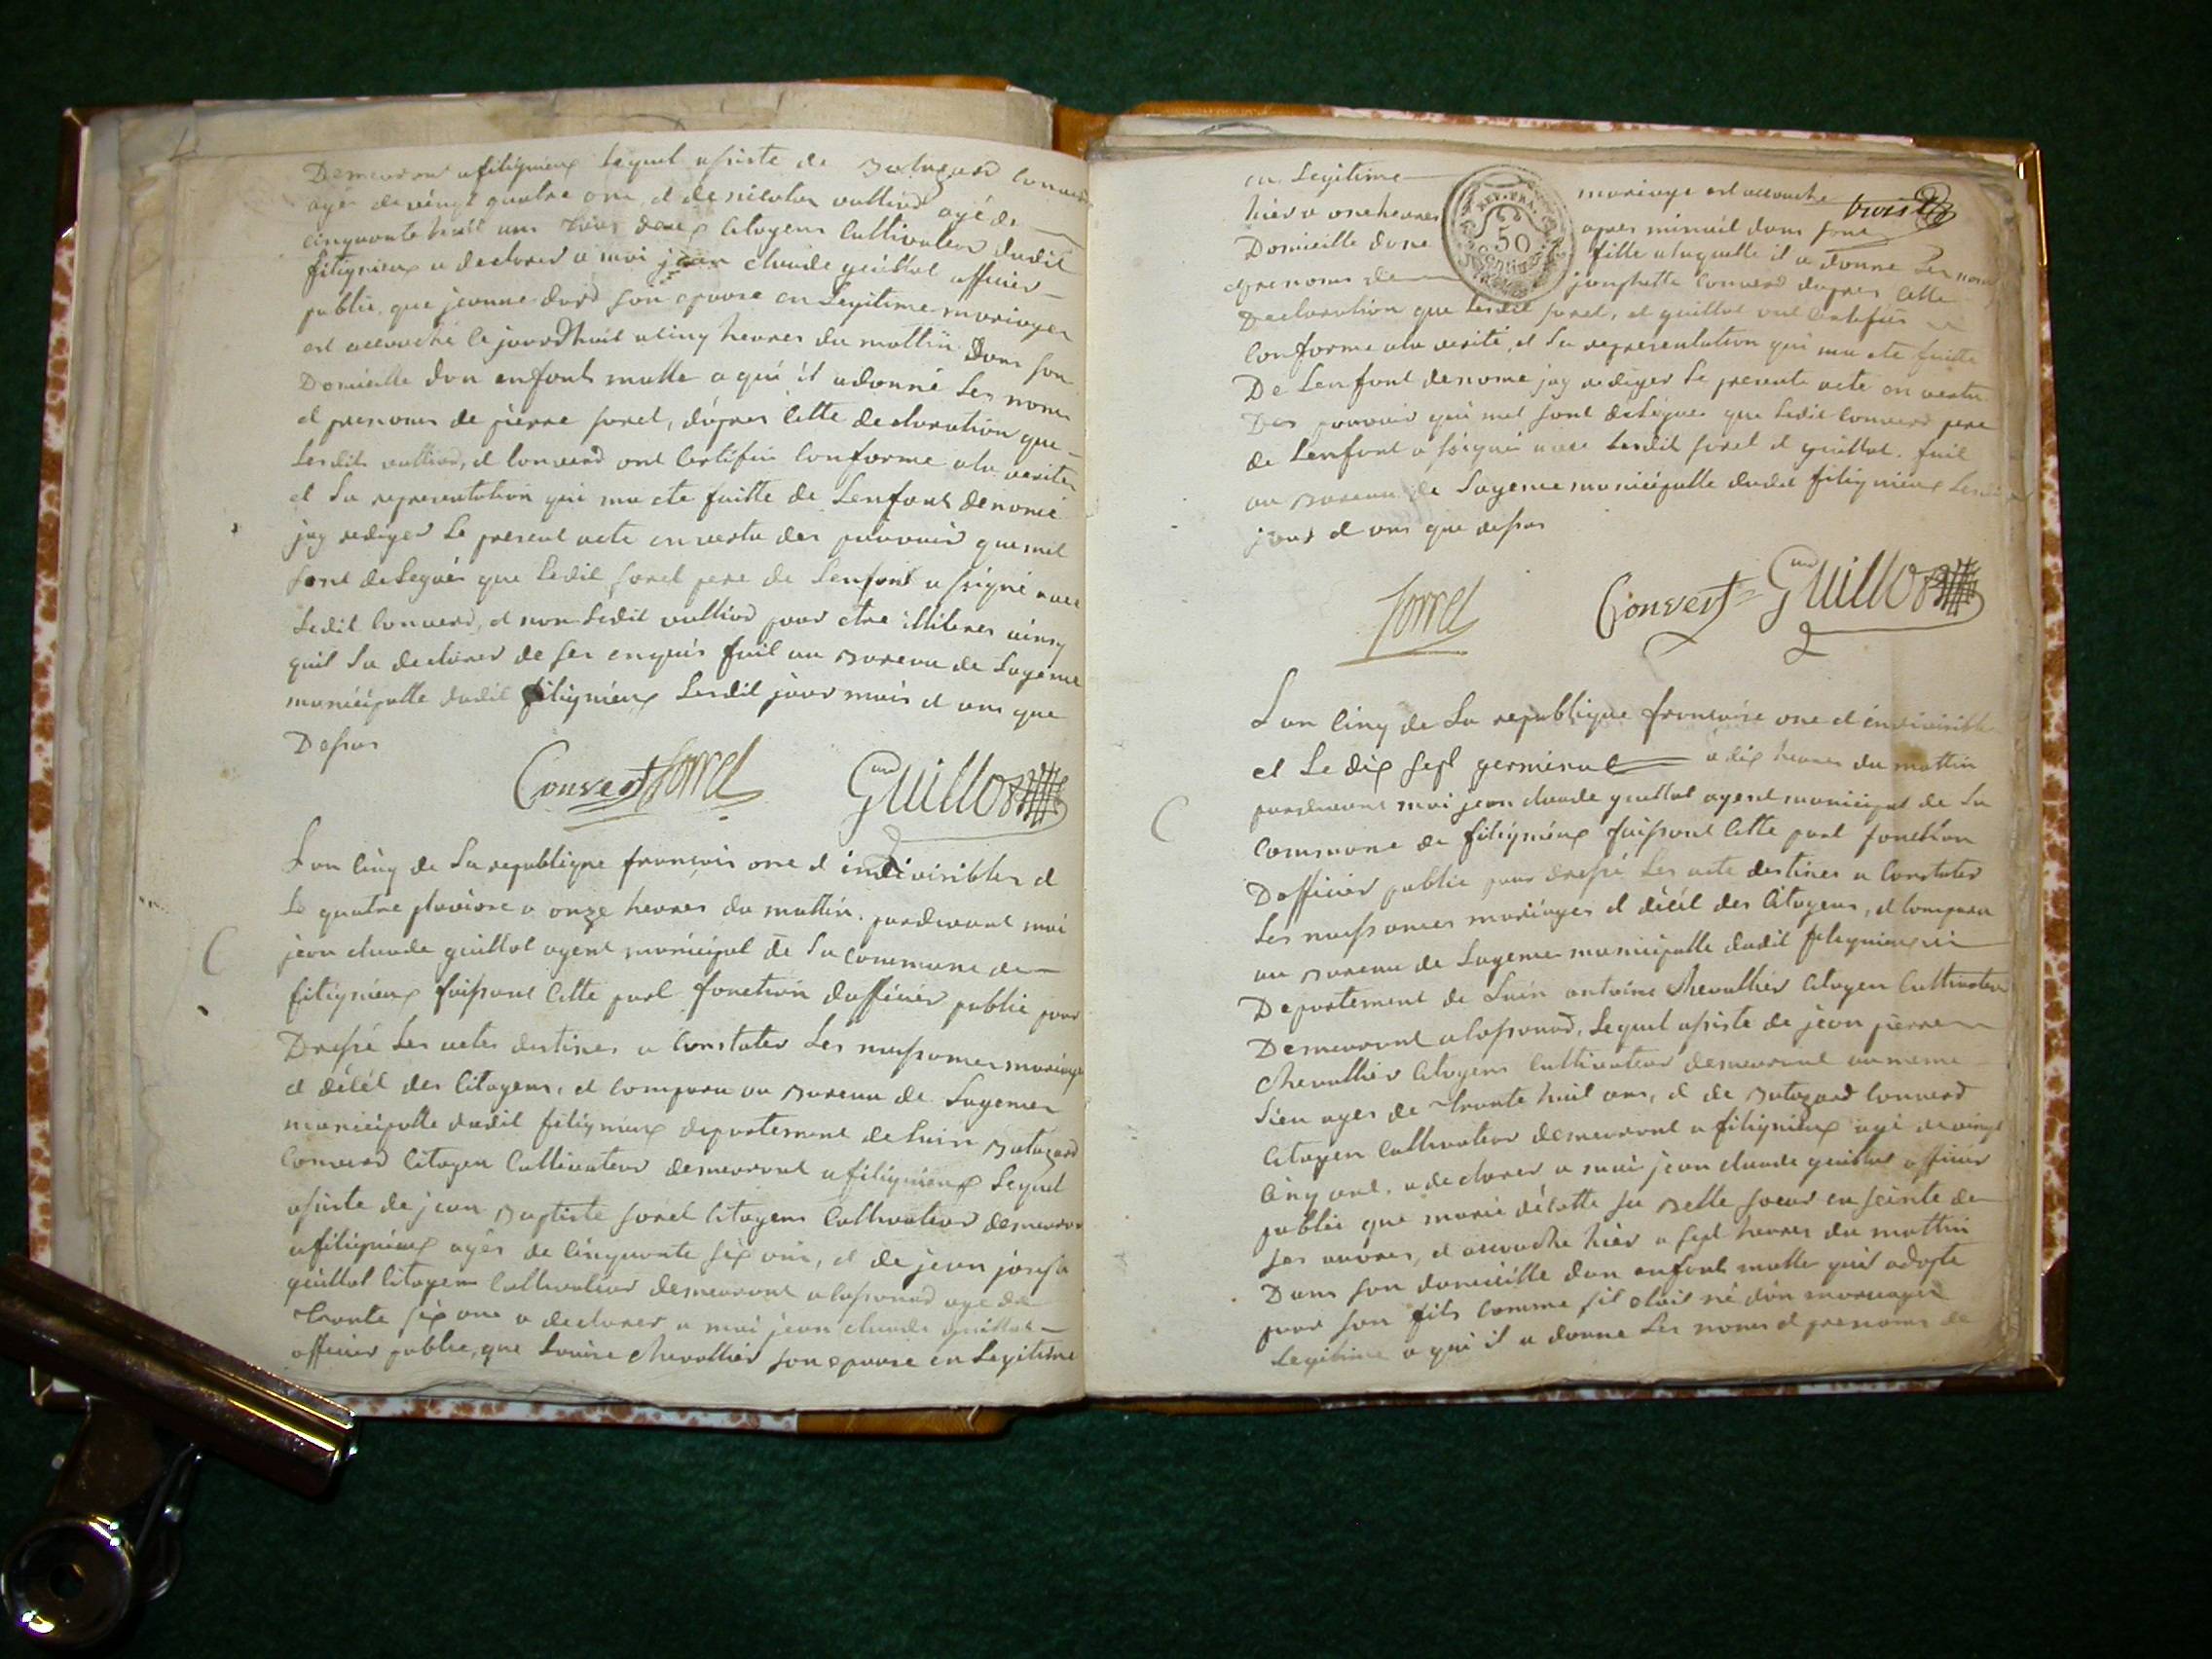 Demeurant a filignieux lequel assiste de Balthazard Convert
agé de vingt quatre ans, et de nicolas vulliod agé de
cinquante huit ans tous deux Citoyens Cultivateur dudit
filignieux a declarer a moi jean claude guillot officier
public, que jeanne dord son epouse en Legitime mariages
est accouché ce jourdhuit a cinq heures du mattin Dans son
Domicille don enfant malle a qui il a donné Les noms
et prenoms de pierre sorel, dápres Cette declaration que
Lesdits vulliod, et Converd ont Certifier Conforme a la veritée
et La representation qui ma ete faitte de Lenfant denomé
jay rediger Le present acte en vertu des pouvoir que mit
sont delegués que Ledit sorel pere de Lenfant a signé avec
Ledit Converd, et non Ledit vulliod pour etre illiteres ainsy
quil La declarer de ses enquis fait au Bureau de Lagence
municipalle dudit filignieux Lesdit jour mois et ans que
Dessus
Convert Sorrel Guillot
Lan cinq de La republique françois one et indivisibles et
Le quatre pluviose a onze heures du mattin. pardevant moi
jean claude guillot agent municipal de La Commune de
filignieux faissant Cette part fonction dofficier public pour
Dressé Les actes destines a Constater Les naissances mariages
et décét des Citoyens, et Comparu au Bureau de Lagence
municipalle dudit filignieux departement de Lain Batazard
Converd Citoyen Cultivateur demeurant a filignieux Lequel
assiste de jean Baptiste sorel Citoyens Cultivateur demeurant
a filignieux agés de cinquante six ans, et de jean joseph
guillot Citoyen Cultivateur demeurant a lassonod agé de
trante six ans a declarer a moi jean claude guillot
officier public, que Louise Chevallier son epouse en Legitime
en Legitime mariage est accouché trois
hier a one heures apres minuit dans sont
Domicille done fille a laquelle il a donné Les noms
et prenoms de josephette Converd dapres Cette
Declaration que Lesdit sorel, et guillot ont Certifier
Conforme a la verité, et La representation qui ma ete faitte
De Lenfant denomé jay rediger Le presente acte en vertu
Des pouvoir qui met sont delegués que Ledit Converd pere
de Lenfant a signé avec Lesdit sorel et guillot. fait
au Bureau de Lagence municipalle dudit filignieux Lesdit
jour et ans que dessus
REP. FRA.
50
Centimes
Sorrel Convert Guillot
Lan cinq de La republique francoise one et indivisible
et Le dix sept germinal a dix heures du mattin
pardevant moi jean claude guillot agent municipal de La
Commune de filignieux faissant Cette part fonction
Dofficier public pour dressé Les acte destines a Constater
Les naissances mariages et décét des Citoyens, et Comparu
au Bureau de Lagence municipalle dudit filignieux
Departement de Lain antoine Chevallier Citoyen Cultivateur
Demeurant a lassonod, Lequel assiste de jean pierre
Chevallier Citoyens Cultivateur demeurant au meme
Lieu ages de trante huit ans, et de Batazard Converd
Citoyen Cultivateur demeurant a filignieux agé de vingt
cinq ans, a declarer a moi jean claude guillot officier
public que marie décotte sa Belle soeur enseinte de
ses œuvres, et accouché hier a sept heures du mattin
Dans son domicille dun enfant malle quil adopte
pour son fils Comme sil étoit né dún mariages
Legitime a qui il a donne Les noms et prenoms de